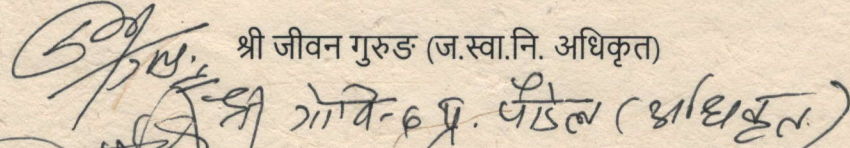 श्री जीवन गुरुङ (ज.स्वा.नि. अधिकृत)
श्री गोविन्द प्र. पौडेल (अधिकृत)